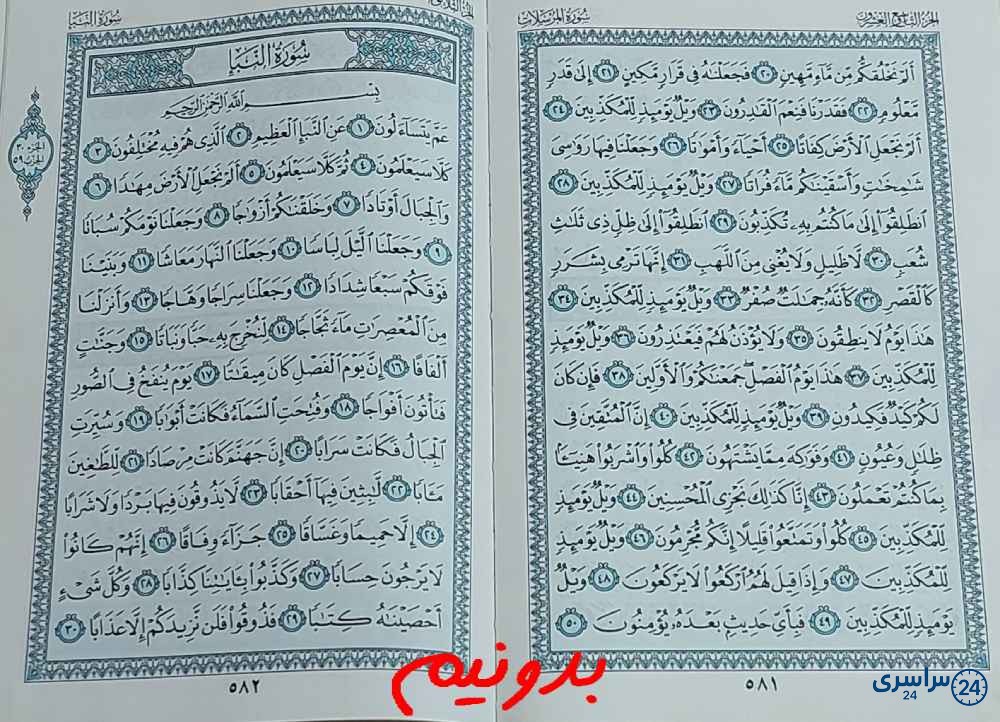 الجزء التاسع والعشرون
سورة المرسلات
أَلَمْ نَخْلُقكُّم مِّن مَّآءٍ مَّهِينٍ ٢٠ فَجَعَلْنَٰهُ فِى قَرَارٍ مَّكِينٍ ٢١ إِلَىٰ قَدَرٍ
مَّعْلُومٍ ٢٢ فَقَدَرْنَا فَنِعْمَ ٱلْقَٰدِرُونَ ٢٣ وَيْلٌ يَوْمَئِذٍ لِّلْمُكَذِّبِينَ ٢٤
أَلَمْ نَجْعَلِ ٱلْأَرْضَ كِفَاتًا ٢٥ أَحْيَآءً وَأَمْوَٰتًا ٢٦ وَجَعَلْنَا فِيهَا رَوَٰسِىَ
شَٰمِخَٰتٍ وَأَسْقَيْنَٰكُم مَّآءً فُرَاتًا ٢٧ وَيْلٌ يَوْمَئِذٍ لِّلْمُكَذِّبِينَ ٢٨
ٱنطَلِقُوٓا۟ إِلَىٰ مَا كُنتُم بِهِۦ تُكَذِّبُونَ ٢٩ ٱنطَلِقُوٓا۟ إِلَىٰ ظِلٍّ ذِى ثَلَٰثِ
شُعَبٍ ٣٠ لَّا ظَلِيلٍ وَلَا يُغْنِى مِنَ ٱللَّهَبِ ٣١ إِنَّهَا تَرْمِى بِشَرَرٍ
كَٱلْقَصْرِ ٣٢ كَأَنَّهُۥ جِمَٰلَتٌ صُفْرٌ ٣٣ وَيْلٌ يَوْمَئِذٍ لِّلْمُكَذِّبِينَ ٣٤
هَٰذَا يَوْمُ لَا يَنطِقُونَ ٣٥ وَلَا يُؤْذَنُ لَهُمْ فَيَعْتَذِرُونَ ٣٦ وَيْلٌ يَوْمَئِذٍ
لِّلْمُكَذِّبِينَ ٣٧ هَٰذَا يَوْمُ ٱلْفَصْلِ جَمَعْنَٰكُمْ وَٱلْأَوَّلِينَ ٣٨ فَإِن كَانَ
لَكُمْ كَيْدٌ فَكِيدُونِ ٣٩ وَيْلٌ يَوْمَئِذٍ لِّلْمُكَذِّبِينَ ٤٠ إِنَّ ٱلْمُتَّقِينَ فِى
ظِلَٰلٍ وَعُيُونٍ ٤١ وَفَوَٰكِهَ مِمَّا يَشْتَهُونَ ٤٢ كُلُوا۟ وَٱشْرَبُوا۟ هَنِيٓـًٔۢا
بِمَا كُنتُمْ تَعْمَلُونَ ٤٣ إِنَّا كَذَٰلِكَ نَجْزِى ٱلْمُحْسِنِينَ ٤٤ وَيْلٌ يَوْمَئِذٍ
لِّلْمُكَذِّبِينَ ٤٥ كُلُوا۟ وَتَمَتَّعُوا۟ قَلِيلًا إِنَّكُم مُّجْرِمُونَ ٤٦ وَيْلٌ يَوْمَئِذٍ
لِّلْمُكَذِّبِينَ ٤٧ وَإِذَا قِيلَ لَهُمُ ٱرْكَعُوا۟ لَا يَرْكَعُونَ ٤٨ وَيْلٌ
يَوْمَئِذٍ لِّلْمُكَذِّبِينَ ٤٩ فَبِأَىِّ حَدِيثٍۭ بَعْدَهُۥ يُؤْمِنُونَ ٥٠
٥٨١
الجزء الثلاثون
سورة النبإ
سُورَةُ النَّبَإِ
بِسْمِ ٱللَّهِ ٱلرَّحْمَٰنِ ٱلرَّحِيمِ
عَمَّ يَتَسَآءَلُونَ ١ عَنِ ٱلنَّبَإِ ٱلْعَظِيمِ ٢ ٱلَّذِى هُمْ فِيهِ مُخْتَلِفُونَ ٣
كَلَّا سَيَعْلَمُونَ ٤ ثُمَّ كَلَّا سَيَعْلَمُونَ ٥ أَلَمْ نَجْعَلِ ٱلْأَرْضَ مِهَٰدًا ٦
وَٱلْجِبَالَ أَوْتَادًا ٧ وَخَلَقْنَٰكُمْ أَزْوَٰجًا ٨ وَجَعَلْنَا نَوْمَكُمْ سُبَاتًا
٩ وَجَعَلْنَا ٱلَّيْلَ لِبَاسًا ١٠ وَجَعَلْنَا ٱلنَّهَارَ مَعَاشًا ١١ وَبَنَيْنَا
فَوْقَكُمْ سَبْعًا شِدَادًا ١٢ وَجَعَلْنَا سِرَاجًا وَهَّاجًا ١٣ وَأَنزَلْنَا
مِنَ ٱلْمُعْصِرَٰتِ مَآءً ثَجَّاجًا ١٤ لِّنُخْرِجَ بِهِۦ حَبًّا وَنَبَاتًا ١٥ وَجَنَّٰتٍ
أَلْفَافًا ١٦ إِنَّ يَوْمَ ٱلْفَصْلِ كَانَ مِيقَٰتًا ١٧ يَوْمَ يُنفَخُ فِى ٱلصُّورِ
فَتَأْتُونَ أَفْوَاجًا ١٨ وَفُتِحَتِ ٱلسَّمَآءُ فَكَانَتْ أَبْوَٰبًا ١٩ وَسُيِّرَتِ
ٱلْجِبَالُ فَكَانَتْ سَرَابًا ٢٠ إِنَّ جَهَنَّمَ كَانَتْ مِرْصَادًا ٢١ لِّلطَّٰغِينَ
مَـَٔابًا ٢٢ لَّٰبِثِينَ فِيهَآ أَحْقَابًا ٢٣ لَّا يَذُوقُونَ فِيهَا بَرْدًا وَلَا شَرَابًا
٢٤ إِلَّا حَمِيمًا وَغَسَّاقًا ٢٥ جَزَآءً وِفَاقًا ٢٦ إِنَّهُمْ كَانُوا۟
لَا يَرْجُونَ حِسَابًا ٢٧ وَكَذَّبُوا۟ بِـَٔايَٰتِنَا كِذَّابًا ٢٨ وَكُلَّ شَىْءٍ
أَحْصَيْنَٰهُ كِتَٰبًا ٢٩ فَذُوقُوا۟ فَلَن نَّزِيدَكُمْ إِلَّا عَذَابًا ٣٠
٥٨٢
الجزء ٣٠
الحزب ٥٩
بدونیم
سراسری 24
24